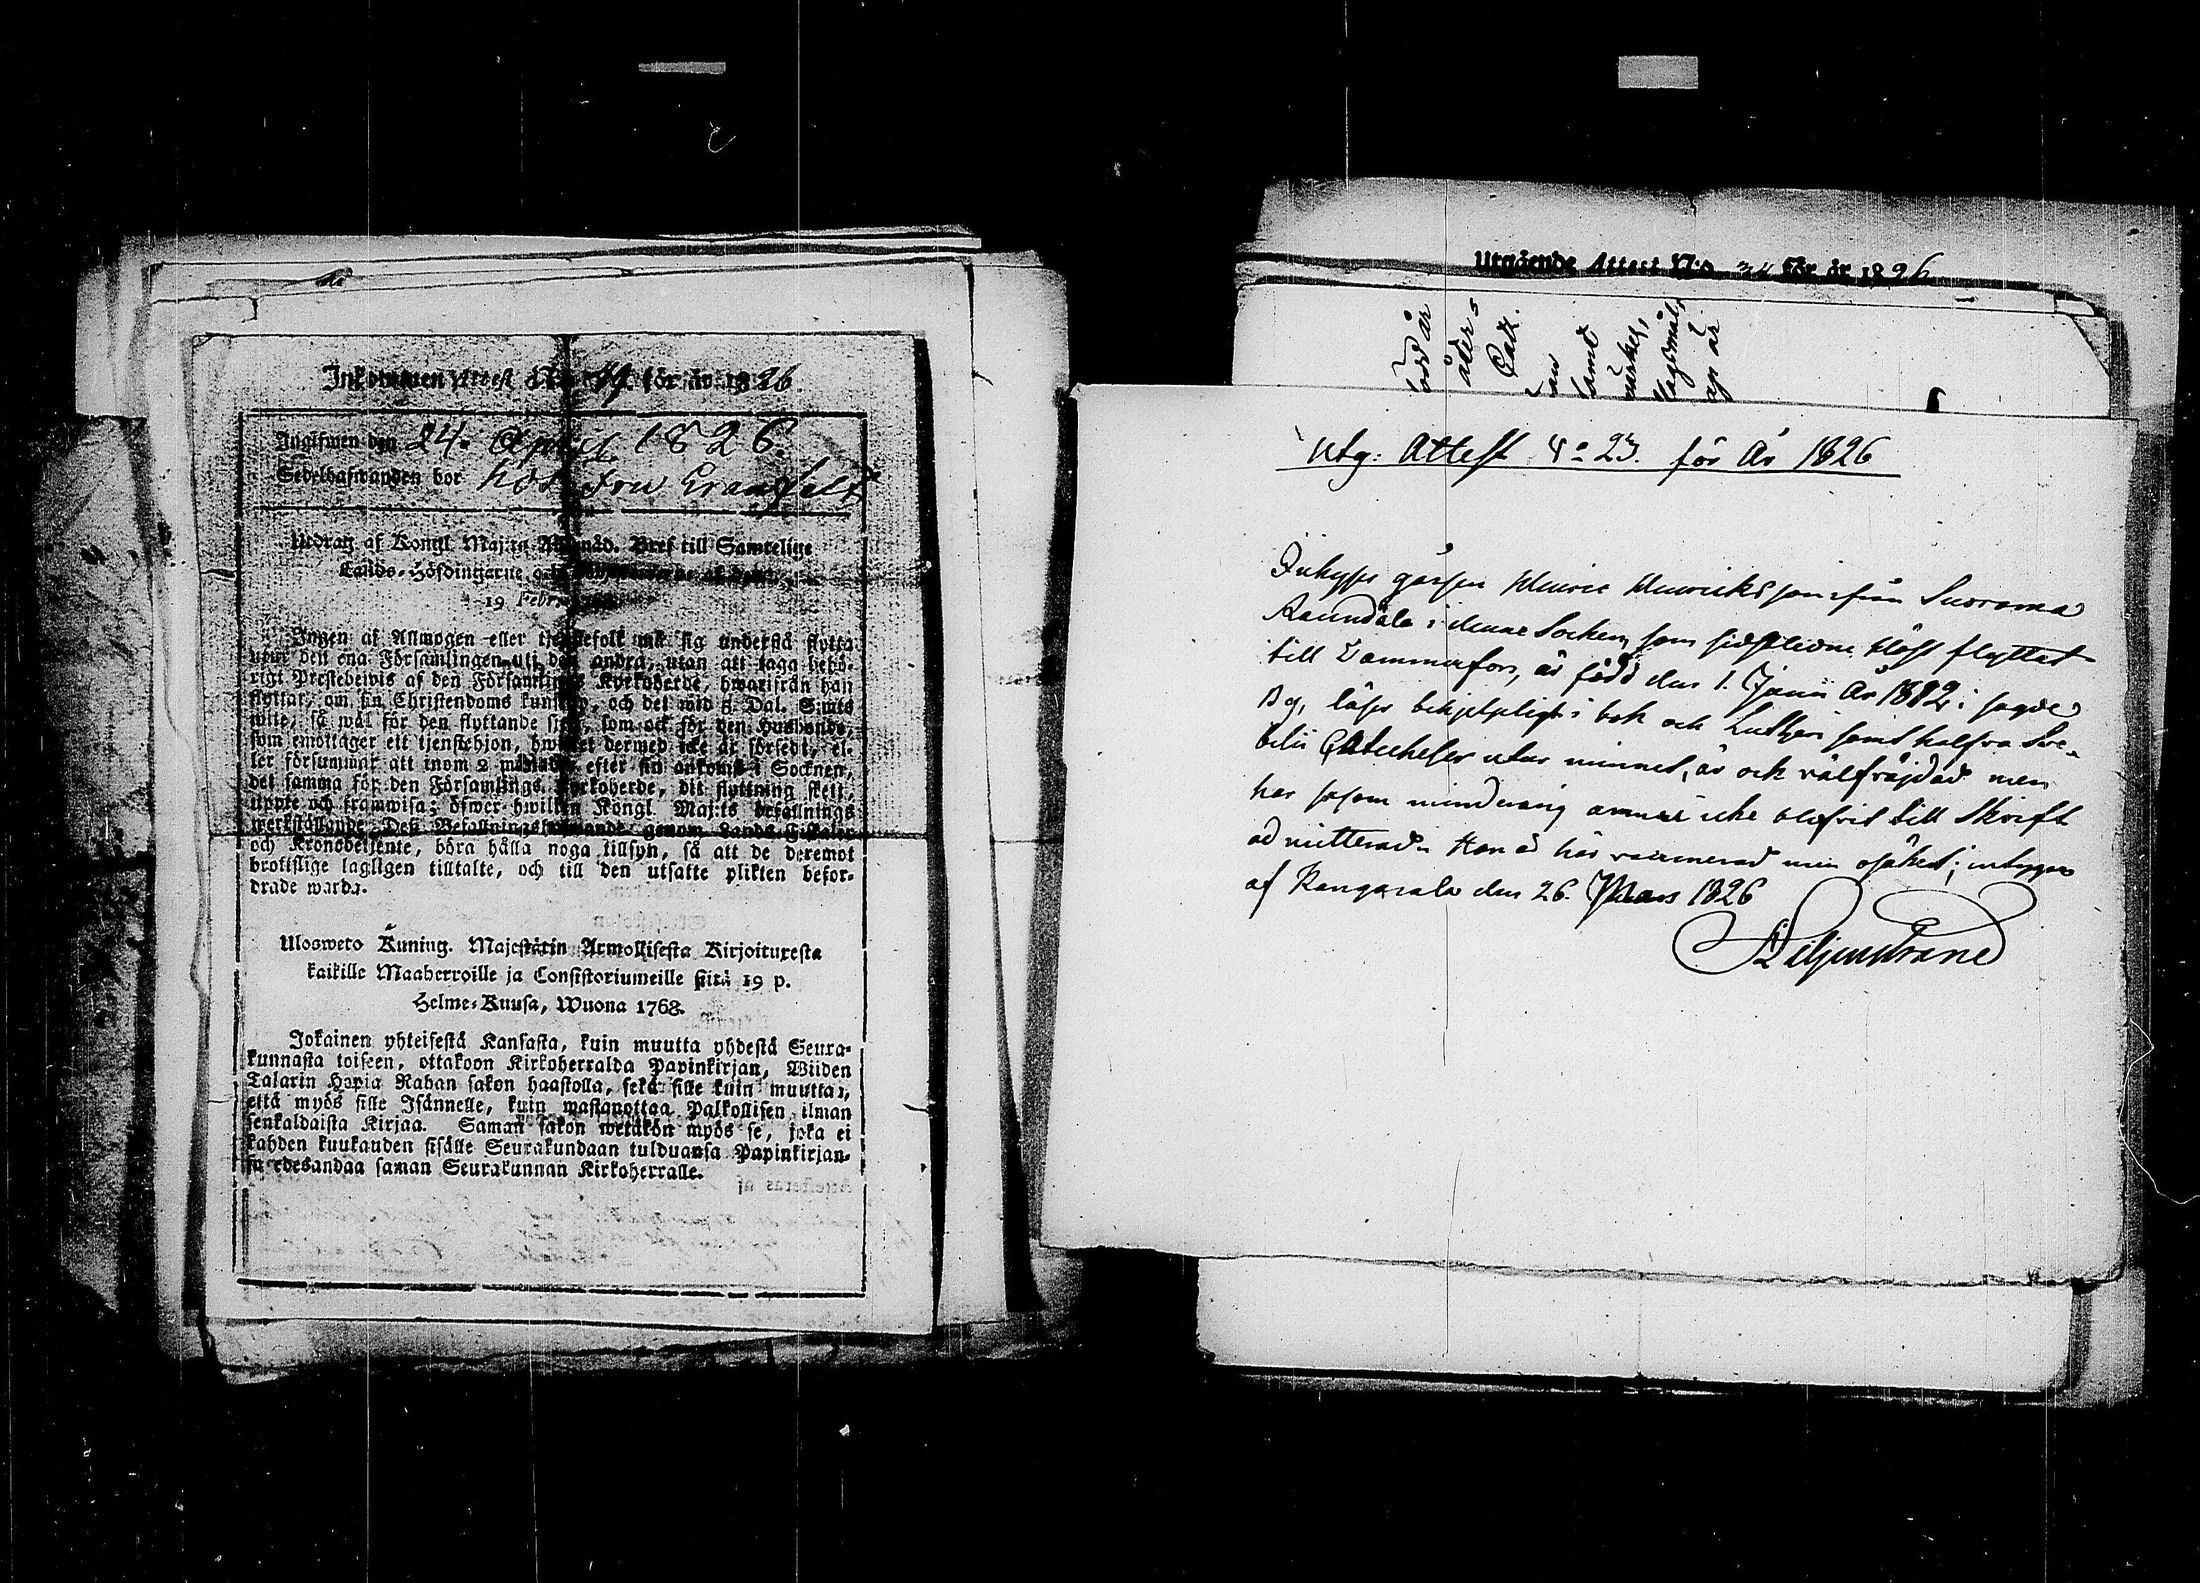 Inkommen Attest N:o 19. för år 1826
Inglefwen den 24. April 1826.
Sedelhafwanden bor hos Fru Granfelt
Utdrag af Kongl. Maj:ts Allernåd. Bref till Samtelige
Lands-Höfdingarne och
19 Febr.
Ingen af Allmogen eller tjenstefolk må sig understå flytta
utur den ena Församlingen uti den andra, utan att taga behö-
rigt Prestebewis af den Församlings Kyrkoherde, hwarifrån han
flyttar, om sin Christendoms kunskap, och det wid 5. Dal. S:mts
wite, så wäl för den flyttande sjelf, som ock för den Husbonde,
som emottager ett tjenstehjon, hwilket dermed icke är försedt, el-
ler försummar att inom 2 månader efter sin ankomst i Socknen,
det samma för den Församlings Kyrkoherde, dit flyttning skett,
uppte och framwisa; öfwer hwilken Kongl. Maj:ts befallnings
werkställande Dess Befallningshafwande genom Lands-Fiskaler
och Kronobetjente, böra hålla noga tillsyn, så att de deremot
brottslige lagligen tilltalte, och till den utsatte plikten befor-
drade warda.
Ulosweto Kuning. Majestätin Armollisesta Kirjoituxesta
kaikille Maaherroille ja Consistoriumeille siitä 19 p.
Helme-Kuusa, Wuona 1768.
Jokainen yhteisestä Kansasta, kuin muutta yhdestä Seura-
kunnasta toiseen, ottakoon Kirkoherralda Papinkirjan, Wiiden
Talarin Hopia Rahan sakon haastolla, sekä sille kuin muuttaa,
että myös sille Isännelle, kuin wastanottaa Palkollisen ilman
senkaldaista Kirjaa. Saman sakon wetäkön myös se, joka ei
kahden kuukauden sisälle Seurakundaan tulduansa Papinkirjan-
sa edesandaa saman Seurakunnan Kirkoherralle.
Utgående Attest N:o 34 för år 1826
född år
Cat.
samt
Utg: Attest No 23. för År 1826
Inhyses gossen Henric Henricksson ifrån Suorama
Raundala i denne Socken, som sidstledne höst flyttat
till Tammerfors, är född den 1. Junii År 1812; sagde
Dg, läser behjelpligt i bok och Lutheri samt halfva Sve-
bilii Catecheser utur minnet, är ock välfräjdad men
har såsom minderårig annu icke blifvit till Skrift
admitterad. Han är här vaccinerad men osäkert; intygas
af Kangasala den 26. Mars 1826
Liljestrand